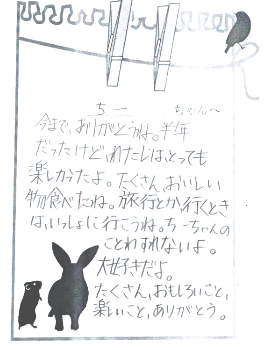 ちーちゃんへ
今まで、ありがとうね。半年
だったけど、わたしは、とっても
楽しかったよ。たくさん、おいしい
物食べたね。旅行とか、行くとき
は、いっしょに行こうね。ちーちゃんの
ことわすれないよ。
大好きだよ。
たくさん、おもしろいこと、
楽しいこと、ありがとう。